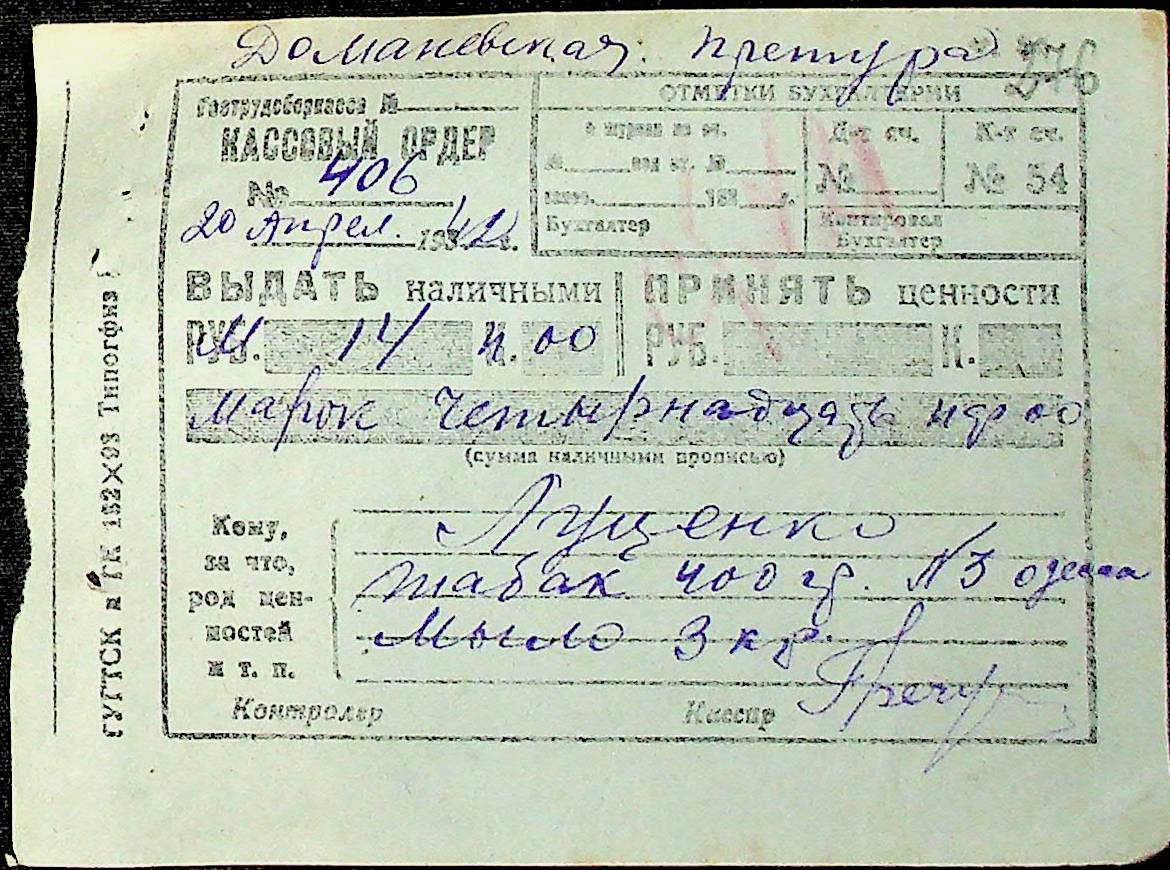 Доманевская претура
276
Гострудсберкасса №
КАССОВЫЙ ОРДЕР
№ 406
20 Апрел. 1942 г.
ОТМЕТКИ БУХГАЛТЕРИИ
№
193 г.
Бухгалтер
Д-т сч.
№
К-т сч.
№ 54
Контировал
Бухгалтер
ВЫДАТЬ наличными
РУБ. М 14 К. 00
ПРИНЯТЬ ценности
РУБ. К.
Марок Четырнадцать пф 00
(сумма наличными прописью)
Кому,
за что,
род цен-
ностей
и т. п.
Луценко
табак 400 гр. №3 одесса
Мыло 3 кр.
Контролер
Кассир
ГУГТСК и ГК 152×93 Типогфия